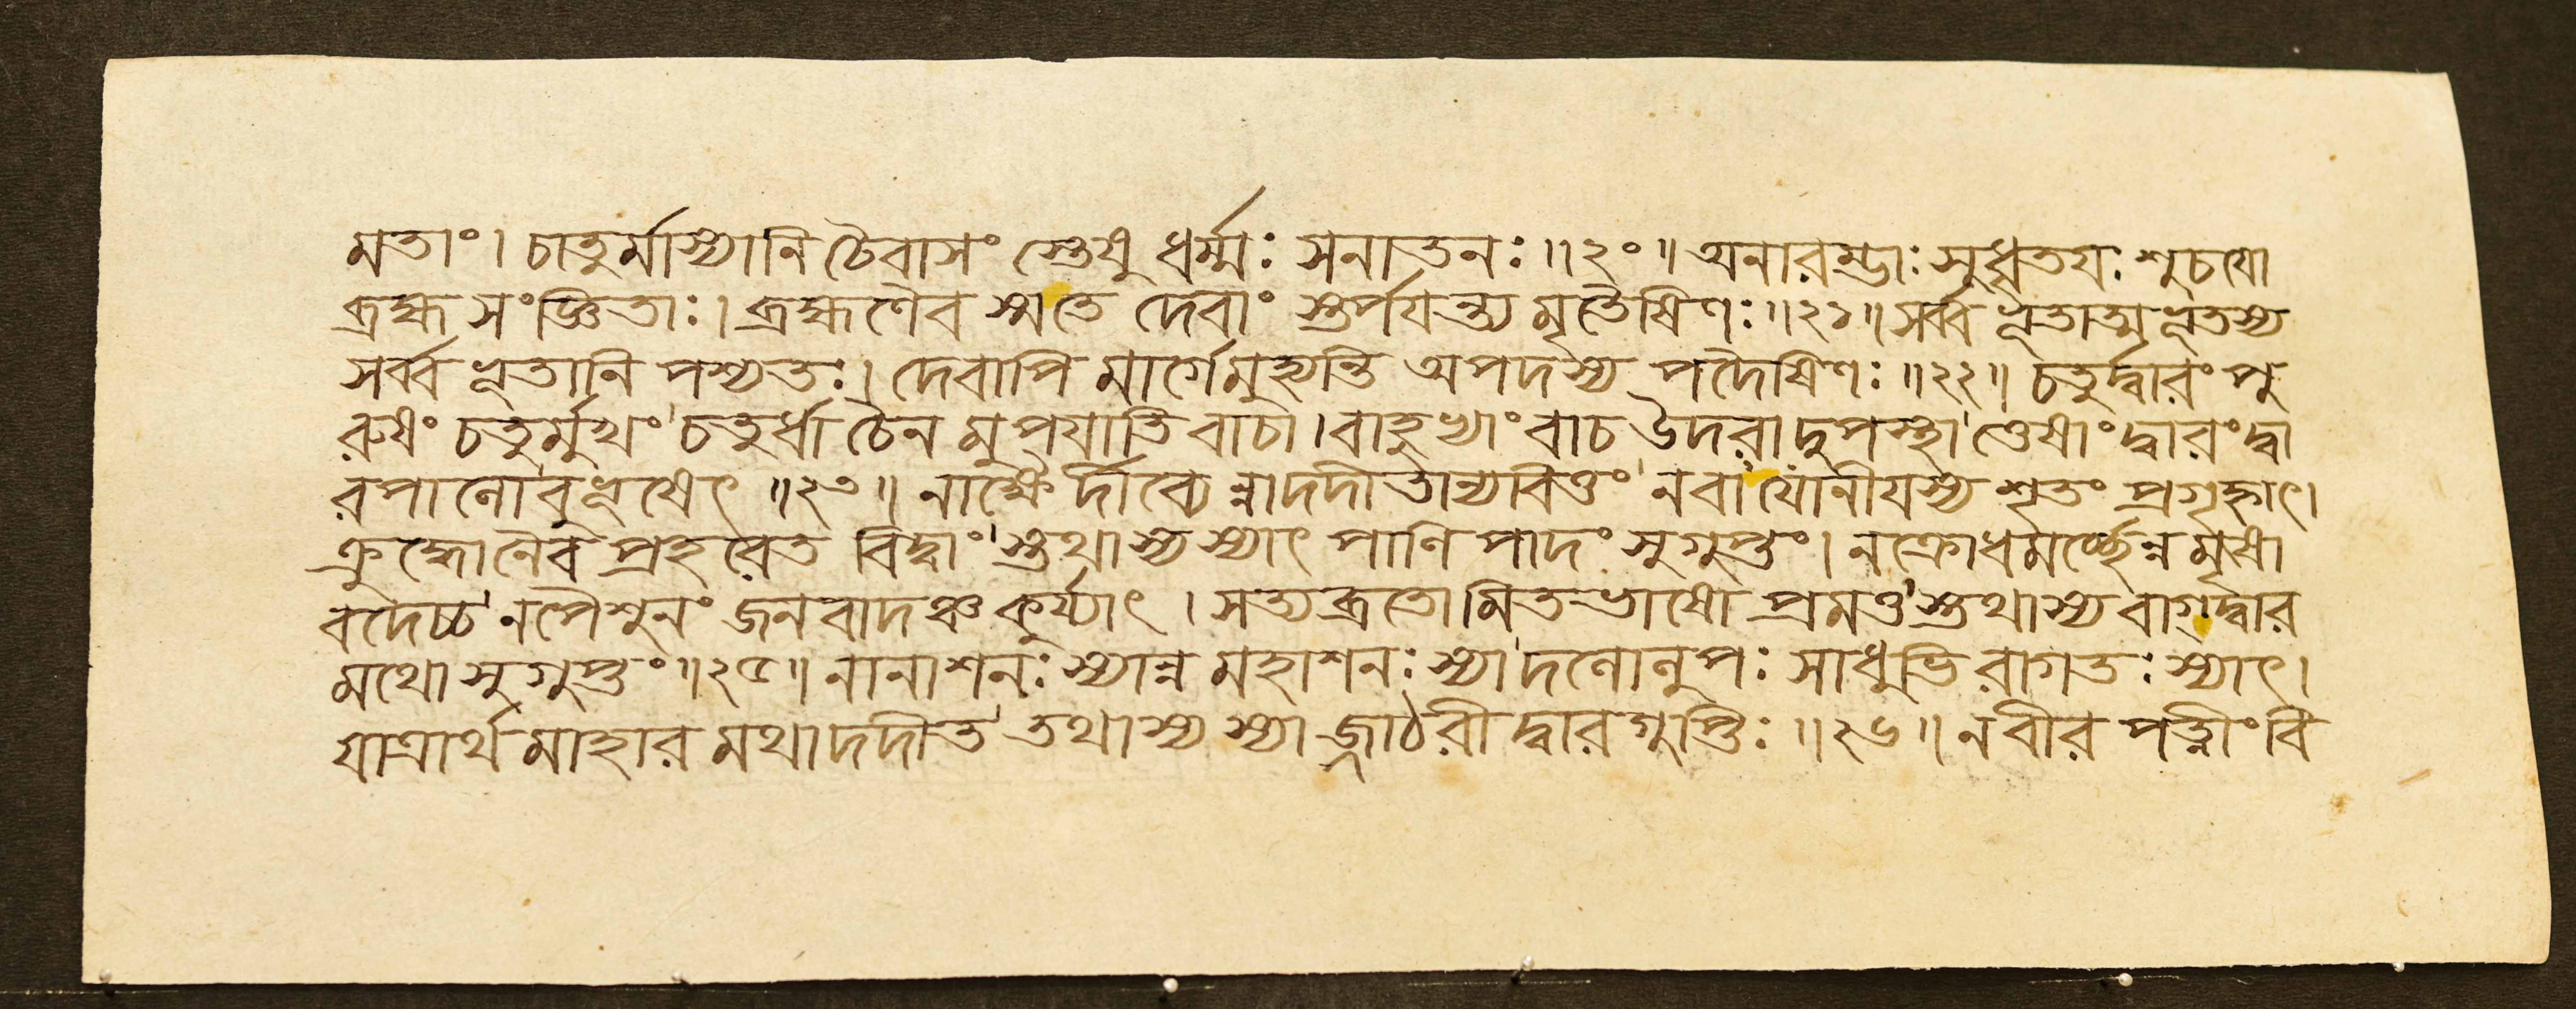 মতাং। চাতুর্মাস্যানি চৈবাসং স্তেষু ধর্ম্মঃ সনাতনঃ॥২০॥ অনারম্ভাঃ সুধৃতযঃ শুচযো
ব্রহ্ম সংজ্ঞিতাঃ। ব্রহ্মণৈব স্মতে দেবাং স্তর্পযন্ত্য মৃতৈষিণঃ॥২১॥ সর্ব্ব ভূতাত্ম ভূতস্য
সর্ব্ব ভূতানি পশ্যতঃ। দেবাপি মার্গেমুহ্যন্তি অপদস্য পদৈষিণঃ॥২২॥ চতুর্দ্বারং পু
রুষং চতুর্মুখং চতুর্ধা চৈন মুপযাতি বাচা। বাহুভ্যাং বাচ উদরাদুপস্থা ত্তেষাং দ্বারং দ্বা
রপানো বুভূষেৎ॥২৩॥ নাক্ষৈ র্দীব্যে ন্নাদদীতান্যবিত্তং নবা যোনীযস্য শৃতং প্রগৃহ্নাৎ।
ক্রুদ্ধোনৈব প্রহরেত বিদ্বাং স্তথাস্য স্যাৎ পাণি পাদং সুগুপ্তং। নক্রোধমর্চ্ছেন্ন মৃষা
বদেচ্চ নপৈশুনং জনবাদঞ্চ কুর্য্যাৎ। সত্যব্রতো মিতভাষো প্রমত্ত স্তথাস্য বাগ্দ্বার
মথো সুগুপ্তং॥২৫॥ নানাশনঃ স্যান্ন মহাশনঃ স্যা দনোনুপঃ সাধুভি রাগতঃ স্যাৎ।
যাত্রার্থ মাহার মথাদদীত তথাস্য স্যা জ্জাঠরী দ্বার গুপ্তিঃ॥২৬॥ নবীর পত্নীং বি